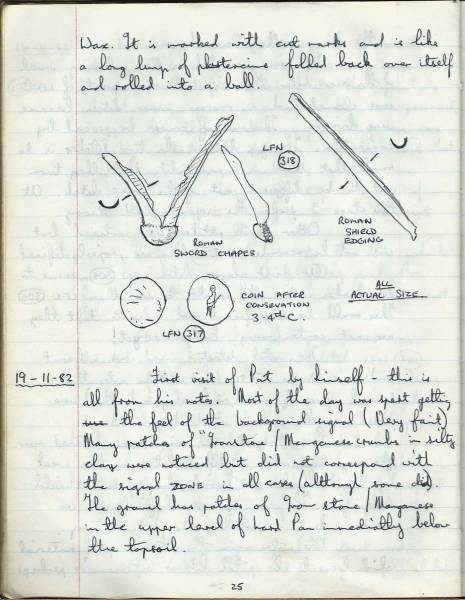 Wax. It is marked with cut marks and is like
a long lump of plastercine folled back over itself
and rolled into a ball.
LFN
318
ROMAN
SWORD CHAPES
ROMAN
SHIELD
EDGING
COIN AFTER
CONSERVATION
3-4th C.
LFN 317
ALL
ACTUAL SIZE
19-11-82
First visit of Pat by himself - this is
all from his notes. Most of the day was spent getting
use the feel of the background signal (Very faint)
Many patches of "Ironstone / Manganese crumbs in silty
clay were noticed but did not correspond with
the signal ZONE in all cases (although some did).
The gravel has patches of Iron stone / Manganese
in the upper level of hard Pan immediatly below
the topsoil.
25